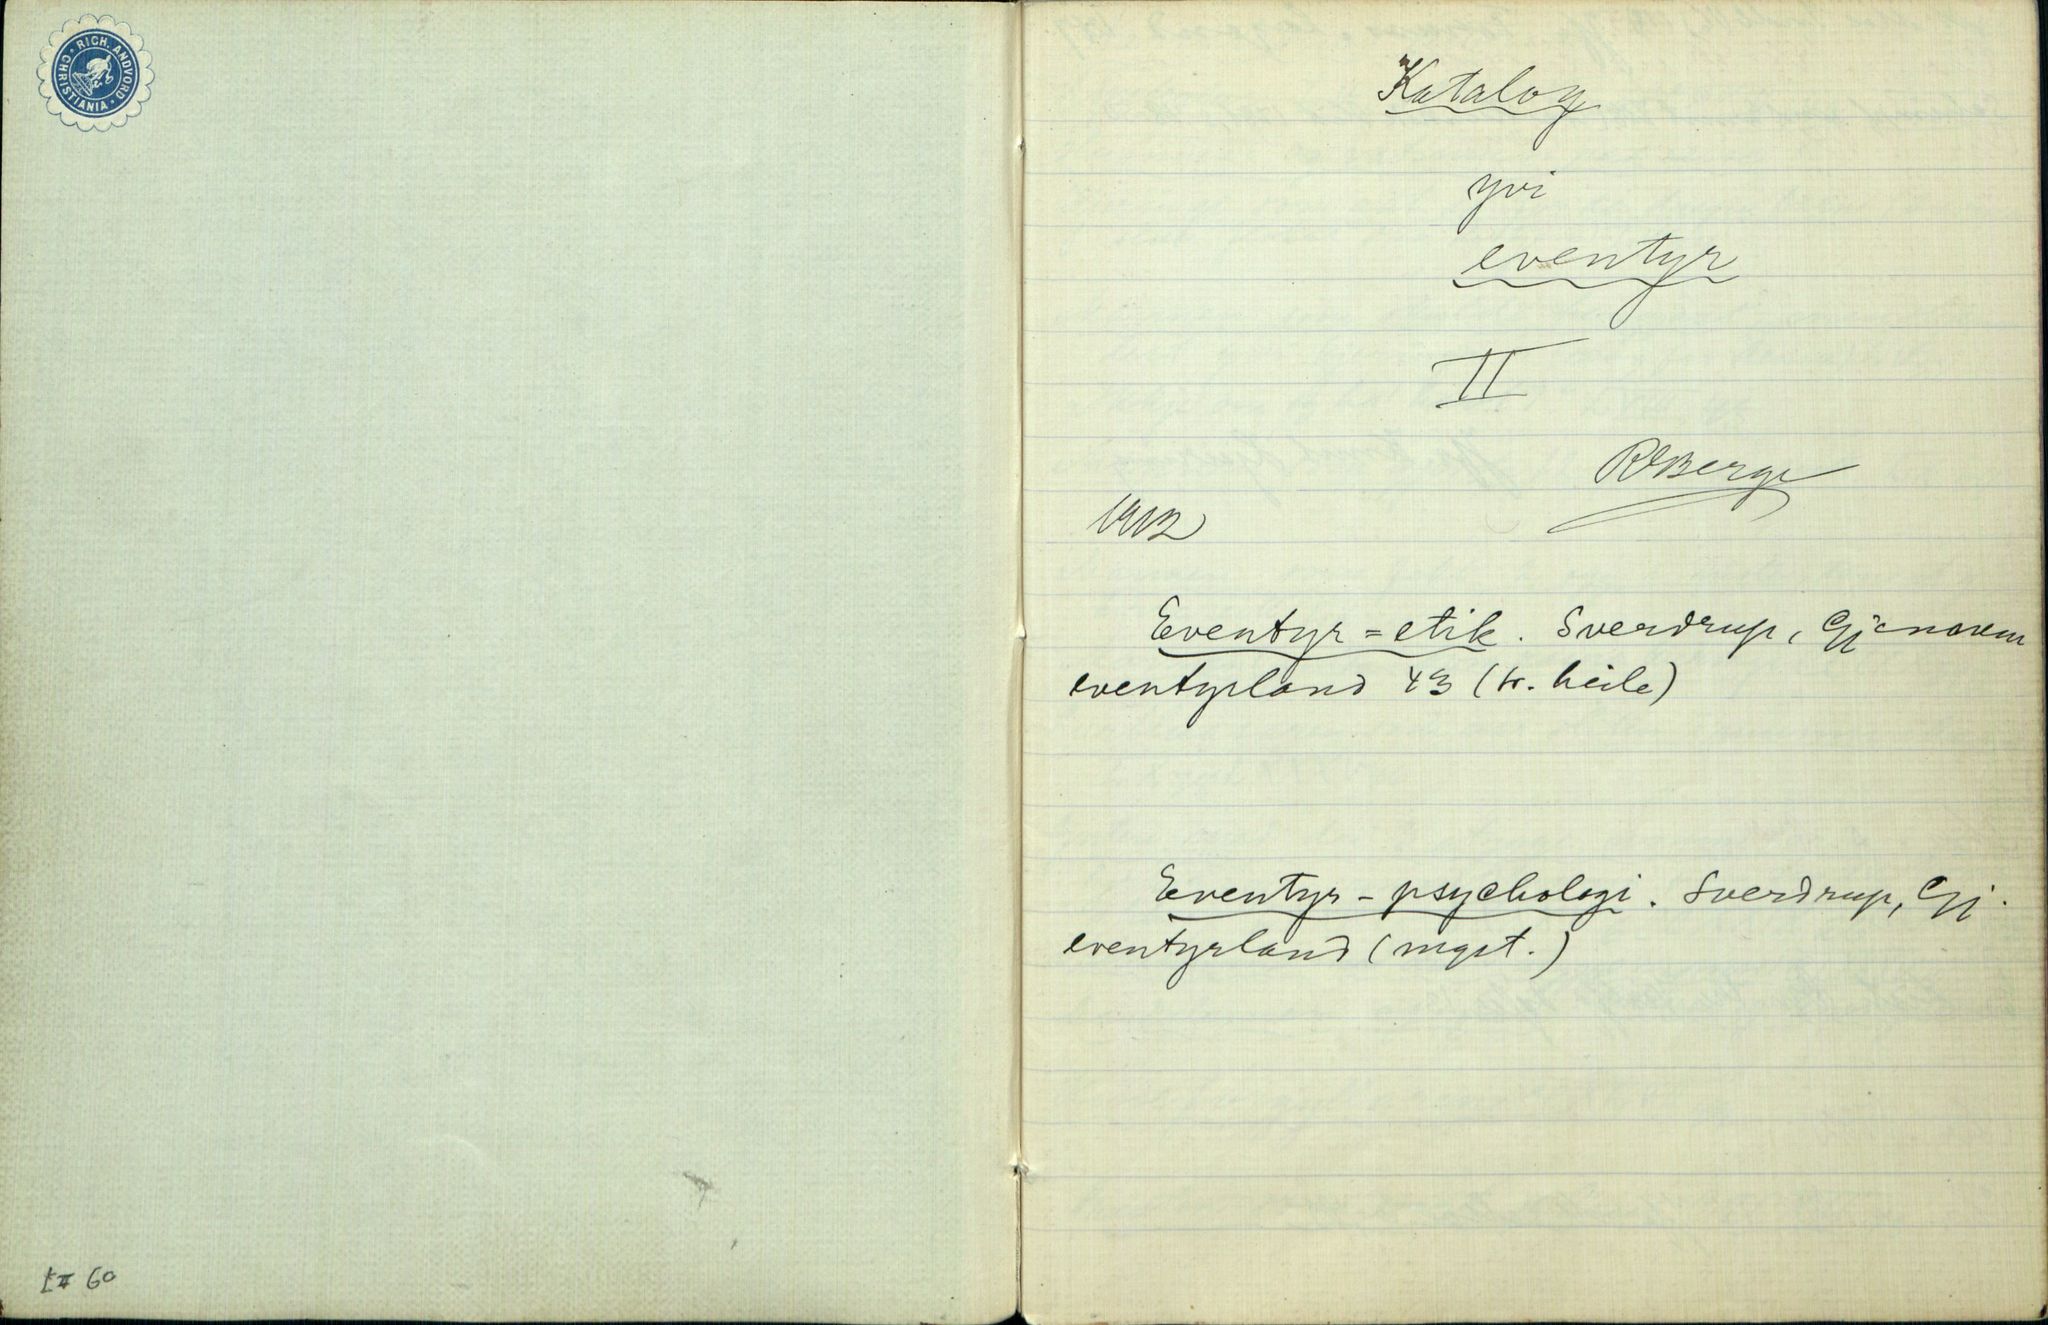 RICH. ANDVORD
CHRISTIANIA
60
Katalog
yvi
eventyr
II
RBerge
1912
Eventyr=etik. Sverdrup, Gjenovem
eventyrland 43 (tr. heile)
Eventyr-psychologi. Sverdrup, Gj.
eventyrland (mgst.)